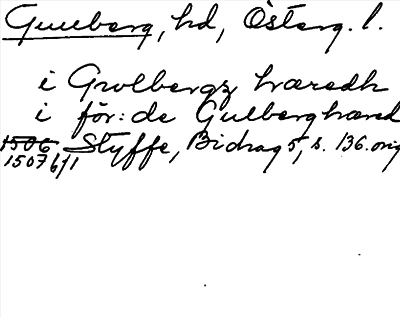 Gullberg, hd, Österg. l.
i Gwolbergz hæredh
i för: de Gulberghæred
1506 Styffe, Bidrag 5, s. 136. orig
1507 6/1